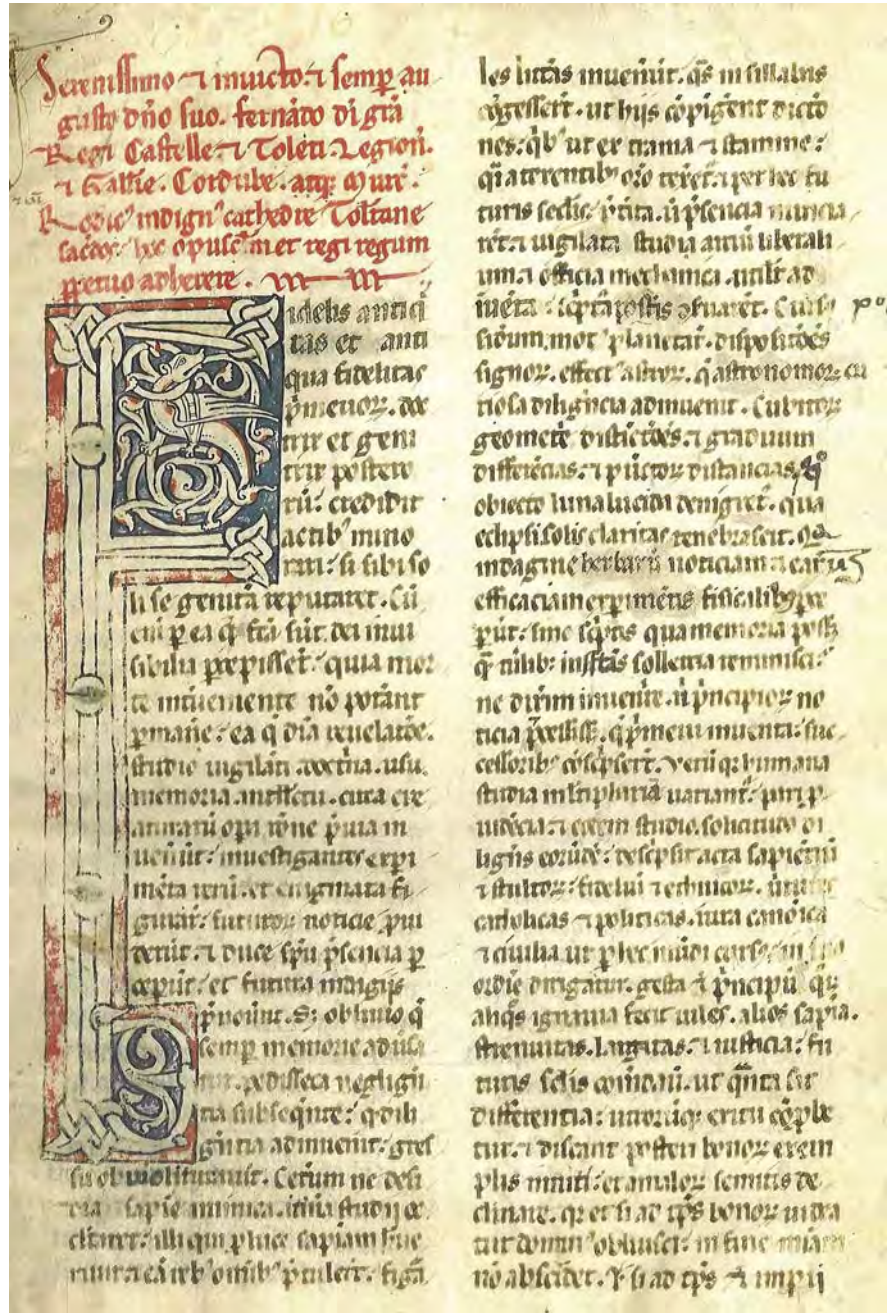 Serenissimo ⁊ inuicto ⁊ semp̱ au
gusto dño suo. fernãdo di gr̃a
Regi Castelle ⁊ Toleti. Legion̄.
⁊ Gallie. Cordube. atq; Mur̃.
Roderic᷒ indign᷒ cathedre Toletane
sacerdos hec opusc̃m et regi regum
perpetuo adherere.
Fidelis antiq̃
tas et anti
qua fidelitas
p̃meuoꝝ. doc
trix et geni
trix postero
rũ: credidit
actib᷒ mino
rari: si sibi so
li se genitã reputaret. Cũ
enĩ ꝑ ea q̃ fc̃a sũt. dei inui
sibilia perpisset: quia mor
te int̃ueniente nõ potãnt
ꝑmañe: ea q̃ diã reuelatõe.
studio uigilãti. doctⁱna. usu.
memoria. intll̃ectu. circa cre
ationis oꝑi rõne p̃uia in
uenũt: inuestigantes expi
mẽta rerũ. et enigmata fi
guraꝝ: futuroꝝ noticie ꝓui
derũt. ⁊ duce sp̃u p̃sencia ꝑ
cepũt: et futura
p̃noũnt. S; obliuio q̃
semp̱ memorie aduersa
tur. pedisseca negligẽ
tia subseqũte: q̃ dili
gẽtia adinuenit: gres
su obuio litturauit. Ceterum ne desi
dia sapĩe inimica. itiña studij oc
cluderet: illi qui ꝓ luce sapiam
⁊ eã reb᷒ oĩib᷒ p̃tulerũt: figu
les litt̃as inuenũt. q̃s in sillabas
cõgesserũt. ut hijs cõpigerent dictõ
nes: q̃b᷒ ut ex trama ⁊ stamine:
q̃i a texentib᷒ orõ texeret̃: ⁊ per hec fu
turis seclis p̃tita. ut p̃sencia nuncia
rẽt. ⁊ uigilata studia artiũ liberali
um. ⁊ officia mechanica. utilit̃ ad
inuẽta: sc̃pta posteris
siderum. mot᷒ planetaꝝ. disposi
signoꝝ. effect᷒ astroꝝ. q̃ astronomoꝝ cu
riosa diligẽcia adinuenit. Cubitoꝝ
geometre distictões. ⁊ graduum
differẽcias. ⁊ pũctoꝝ distancias. q̊
obiecto luna lucida denigret̃. qua
eclipsi solis claritas tenebrascit. Q̃
indagine herbarũ noticiam ⁊ earũ
efficaciam exꝑimẽtis fisicalib᷒
sine sc̃ptis qua memoria posset
reminisci:
ne dicã inuenire. n̄ p̃ncipioꝝ no
ticia p̃cessiss;. q̃ p̃meui inuenta: suc
cessorib᷒ cõsc̃pserũt. Verũ q; humana
studia mltⁱphariã uariant̃: pari ꝓ
uidẽcia ⁊ eodem studio. solicitudo di
ligẽs eorũdẽ: desc̃psit acta sapientũ
⁊ stultoꝝ: fideliũ ⁊ ethnicoꝝ. uirtutes
catholicas ⁊ politicas. iura canõica
⁊ ciuilia ut ꝑ hec mũdi cursus in suo
ordĩe dirigatur. gesta ⁊ p̃ncipũ q̃ꝝ
aliq̃s ignauia fecit uiles. alios sapĩa.
strenuitas. largitas. ⁊ iusticia: fu
turis seclis cõmendauit. ut q̃nta sit
differentia: utroriq; exitu cõꝓbe
tur. ⁊ discant posteri bonoꝝ exem
plis inniti: et a maloꝝ semitis de
clinare. q; et si ad tp̃s bonoꝝ uidea
tur domin᷒ obliuisci: in fine miãm
nõ abscidet. ⁊ si ad tp̃s ⁊ impij